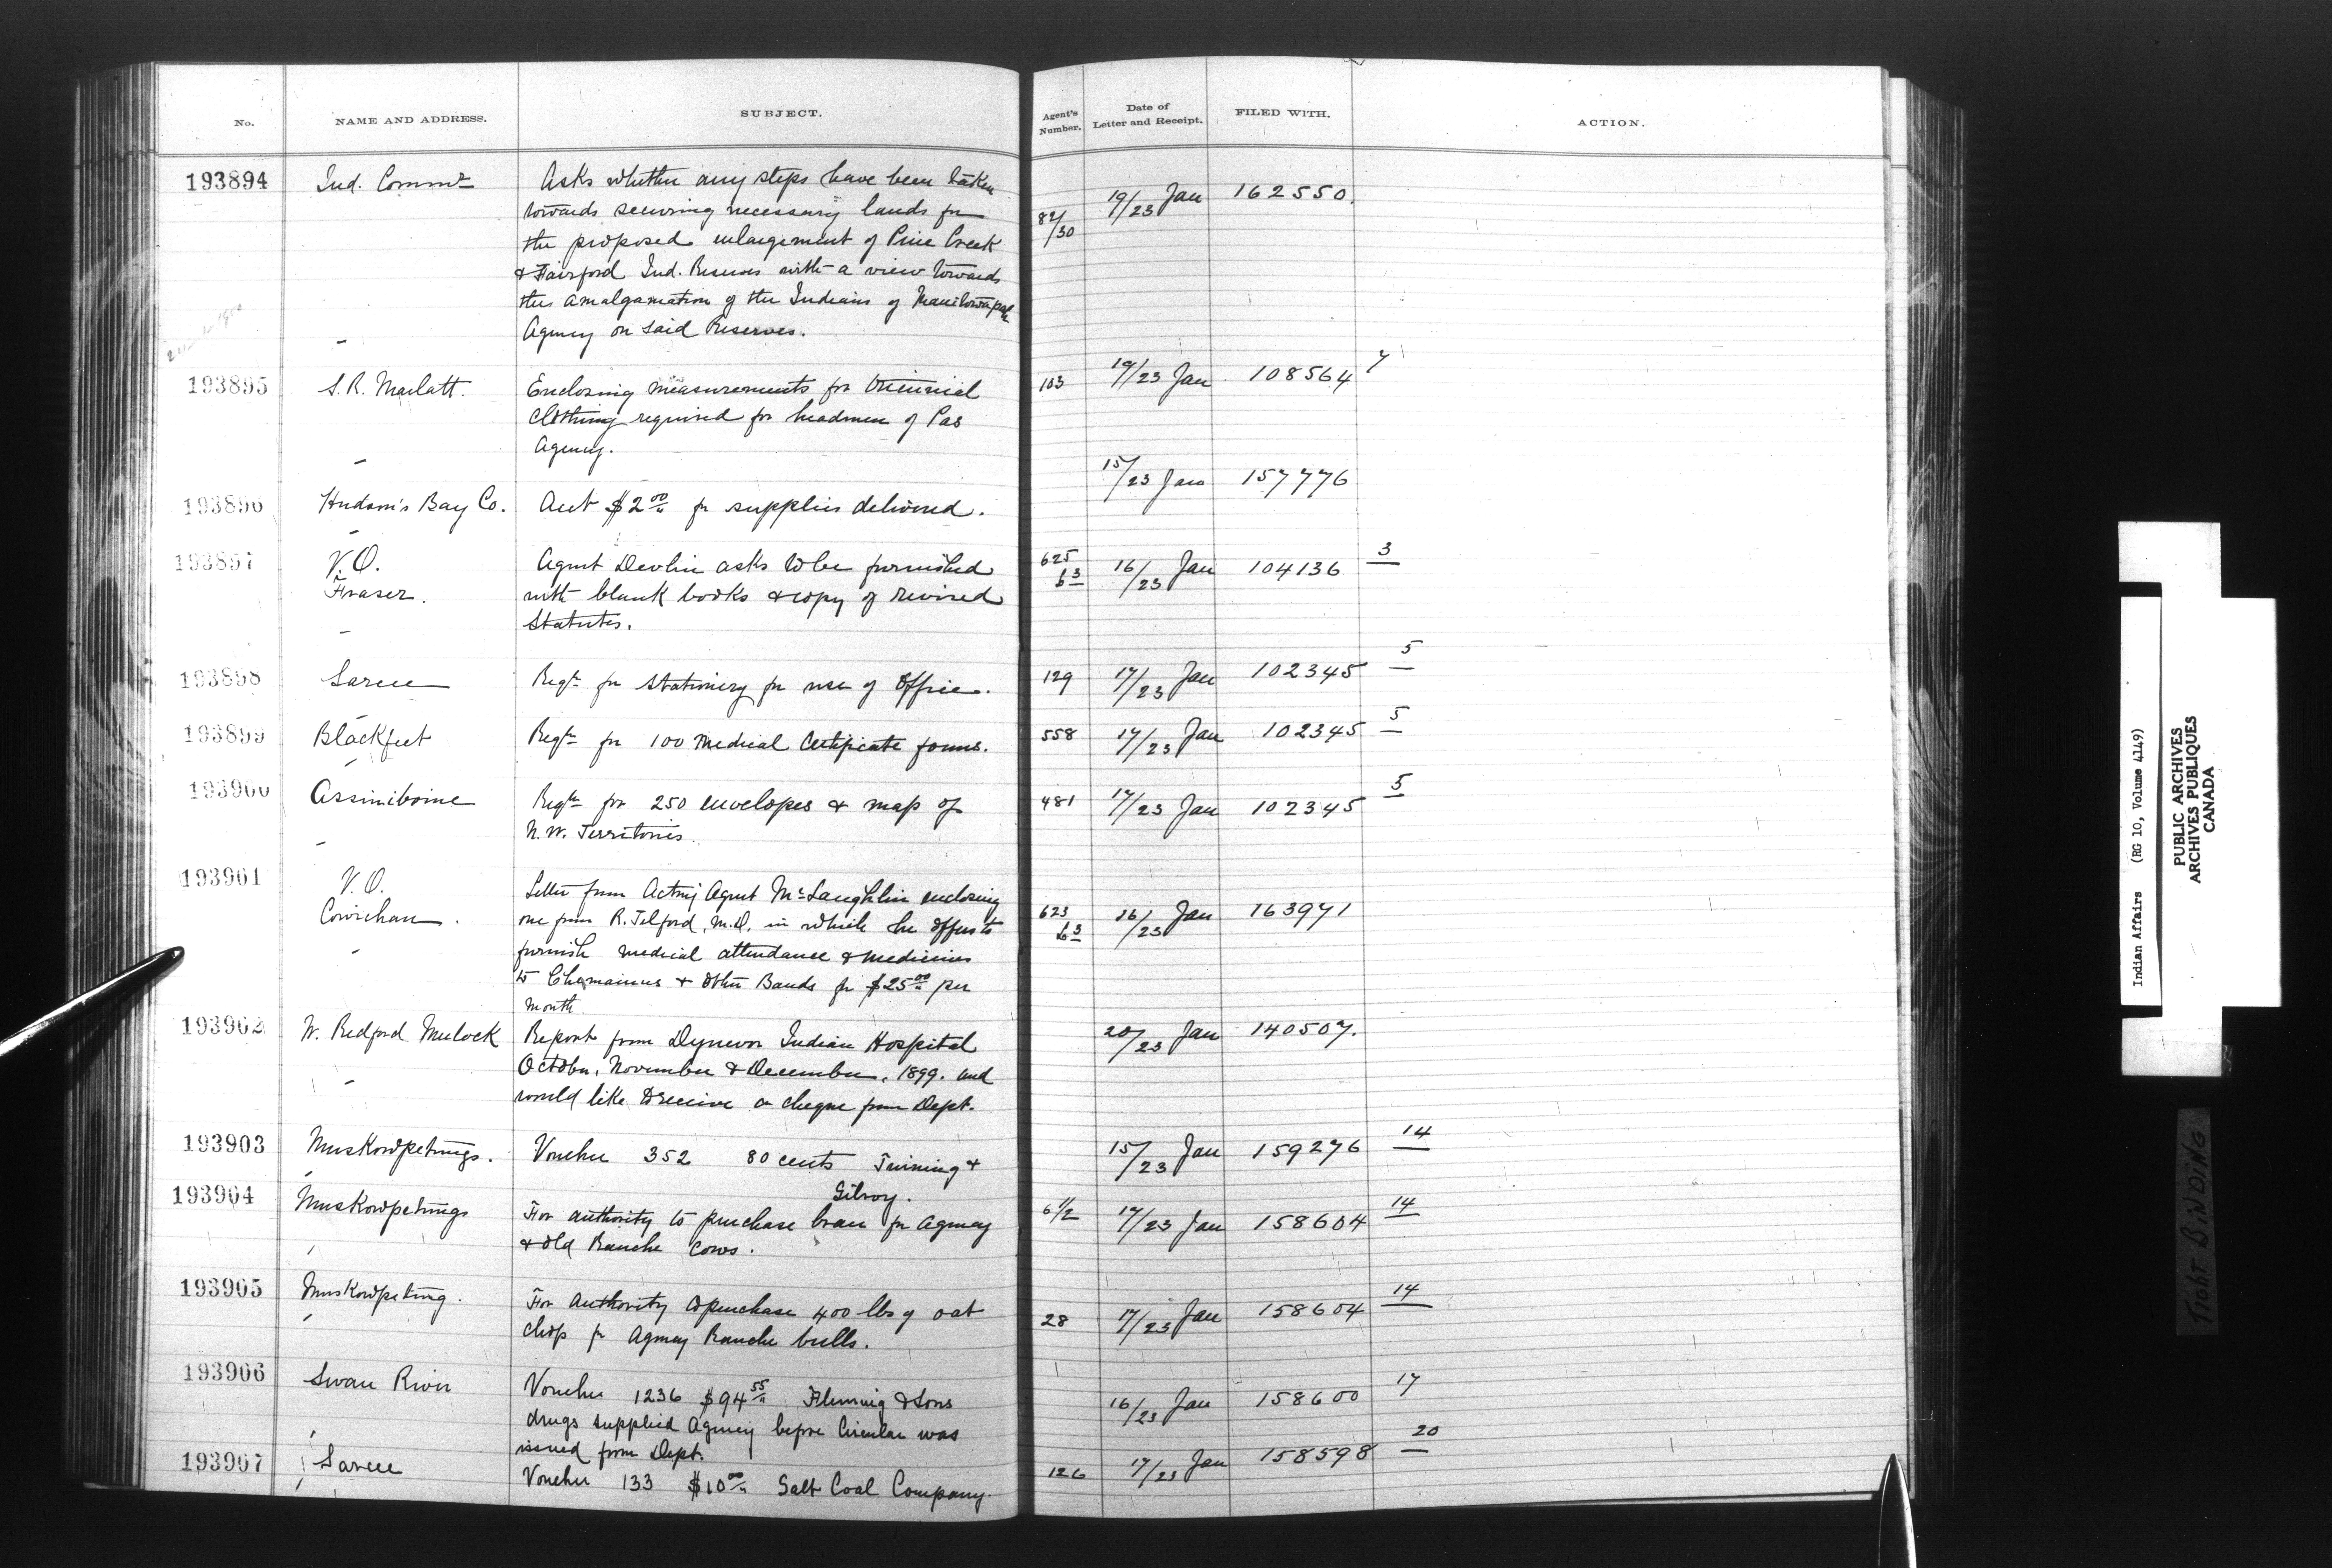 No. NAME AND ADDRESS. SUBJECT. Agent's Number. Date of Letter and Receipt. FILED WITH. ACTION.
193894 Ind. Commr Asks whether any steps have been taken 82/30 19/23 Jan 162550.
towards securing necessary lands for
the proposed enlargement of Pine Creek
& Fairford Ind. Reserves with a view towards
the amalgamation of the Indians of Manitowapah
Agency on said Reserves.
193895 S. R. Marlatt. Enclosing measurements for triennial 103 19/23 Jan 108564 7
clothing required for headmen of Pas
Agency.
193896 Hudson's Bay Co. Acct $2.00 for supplies delivered. 15/23 Jan 157776
193897 V.O. Agent Devlin asks to be furnished 625 63 16/23 Jan 104136 3
Fraser. with blank books & copy of revised
Statutes.
193898 Sarcee Reqn for stationery for use of office. 129 17/23 Jan 102345 5
193899 Blackfeet Reqn for 100 medical certificate forms. 558 17/23 Jan 102345 5
193900 Assiniboine Reqn for 250 envelopes & map of 481 17/23 Jan 102345 5
N.W. Territories.
193901 V.O. Letter from Acting Agent McLaughlin enclosing
Cowichan. one from R. Telford, M.D. in which he offers to 623 63 16/23 Jan 163971
furnish medical attendance & medicines
to Chemainus & other Bands for $25.00 per
month.
193902 W. Redford Mulock Report from Dynevor Indian Hospital 20/23 Jan 140507.
October, November & December, 1899. and
would like to receive a cheque from Dept.
193903 Muskowpetungs. Voucher 352 80 cents Twining & 15/23 Jan 159276 14
Gilroy.
193904 Muskowpetungs For authority to purchase bran for Agency 6 1/2 17/23 Jan 158604 14
& old Ranche cows.
193905 Muskowpetung. For authority to purchase 400 lbs of oat 28 17/23 Jan 158604 14
chop for Agency Ranche bulls.
193906 Swan River Voucher 1236 $94.55 Fleming & Sons 16/23 Jan 158600 17
drugs supplied Agency before Circular was
issued from Dept.
193907 Sarcee Voucher 133 $10.00 Galt Coal Company. 126 17/23 Jan 158598 20
Indian Affairs (RG 10, Volume 4149)
PUBLIC ARCHIVES
ARCHIVES PUBLIQUES
CANADA
TIGHT BINDING